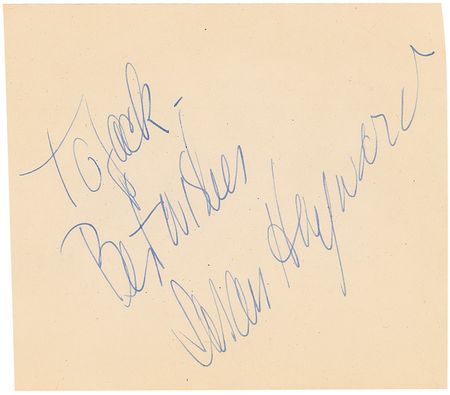 To Jack-
Best wishes
Susan Hayward